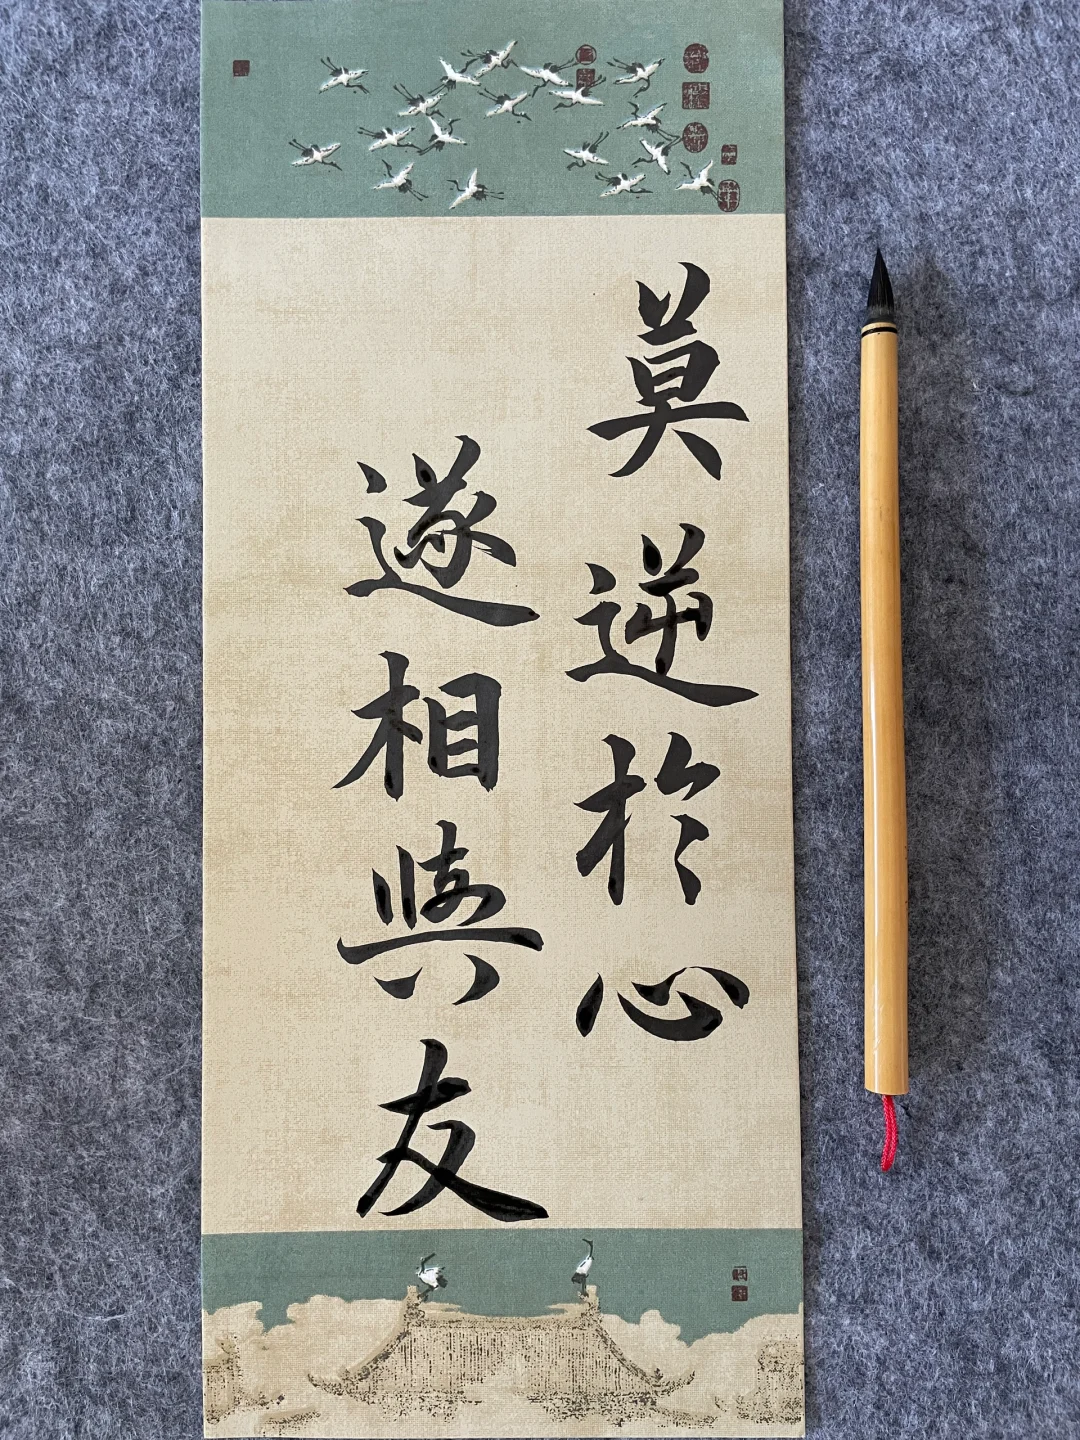 莫逆於心
遂相與友